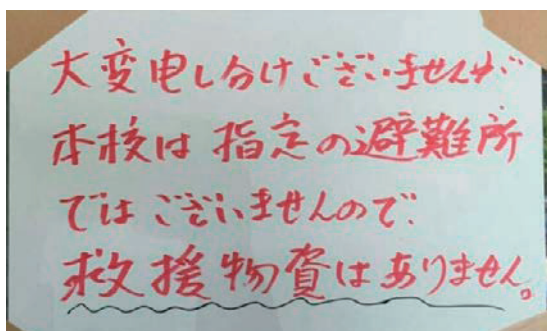 大変申し分けございませんが
本校は指定の避難所
ではございませんので、
救援物資はありません。